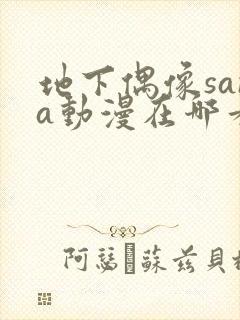 地下偶像sa
a動漫在哪
阿瑟 蘇兹貝